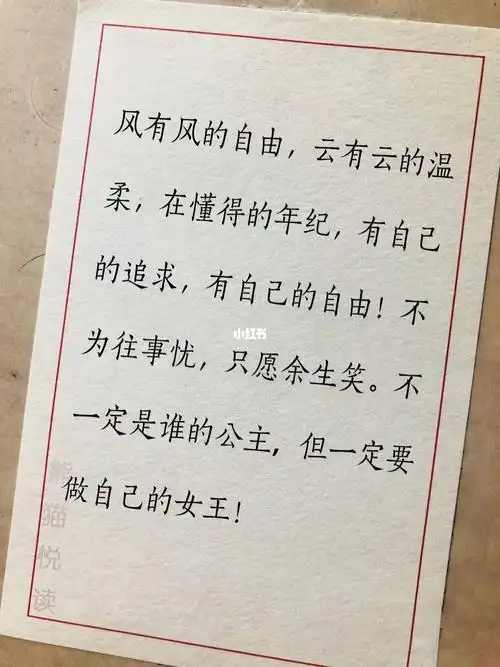 风有风的自由，云有云的温
柔，在懂得的年纪，有自己
的追求，有自己的自由！不
为往事忧，只愿余生笑。不
一定是谁的公主，但一定要
做自己的女王！
小红书
熊猫悦读